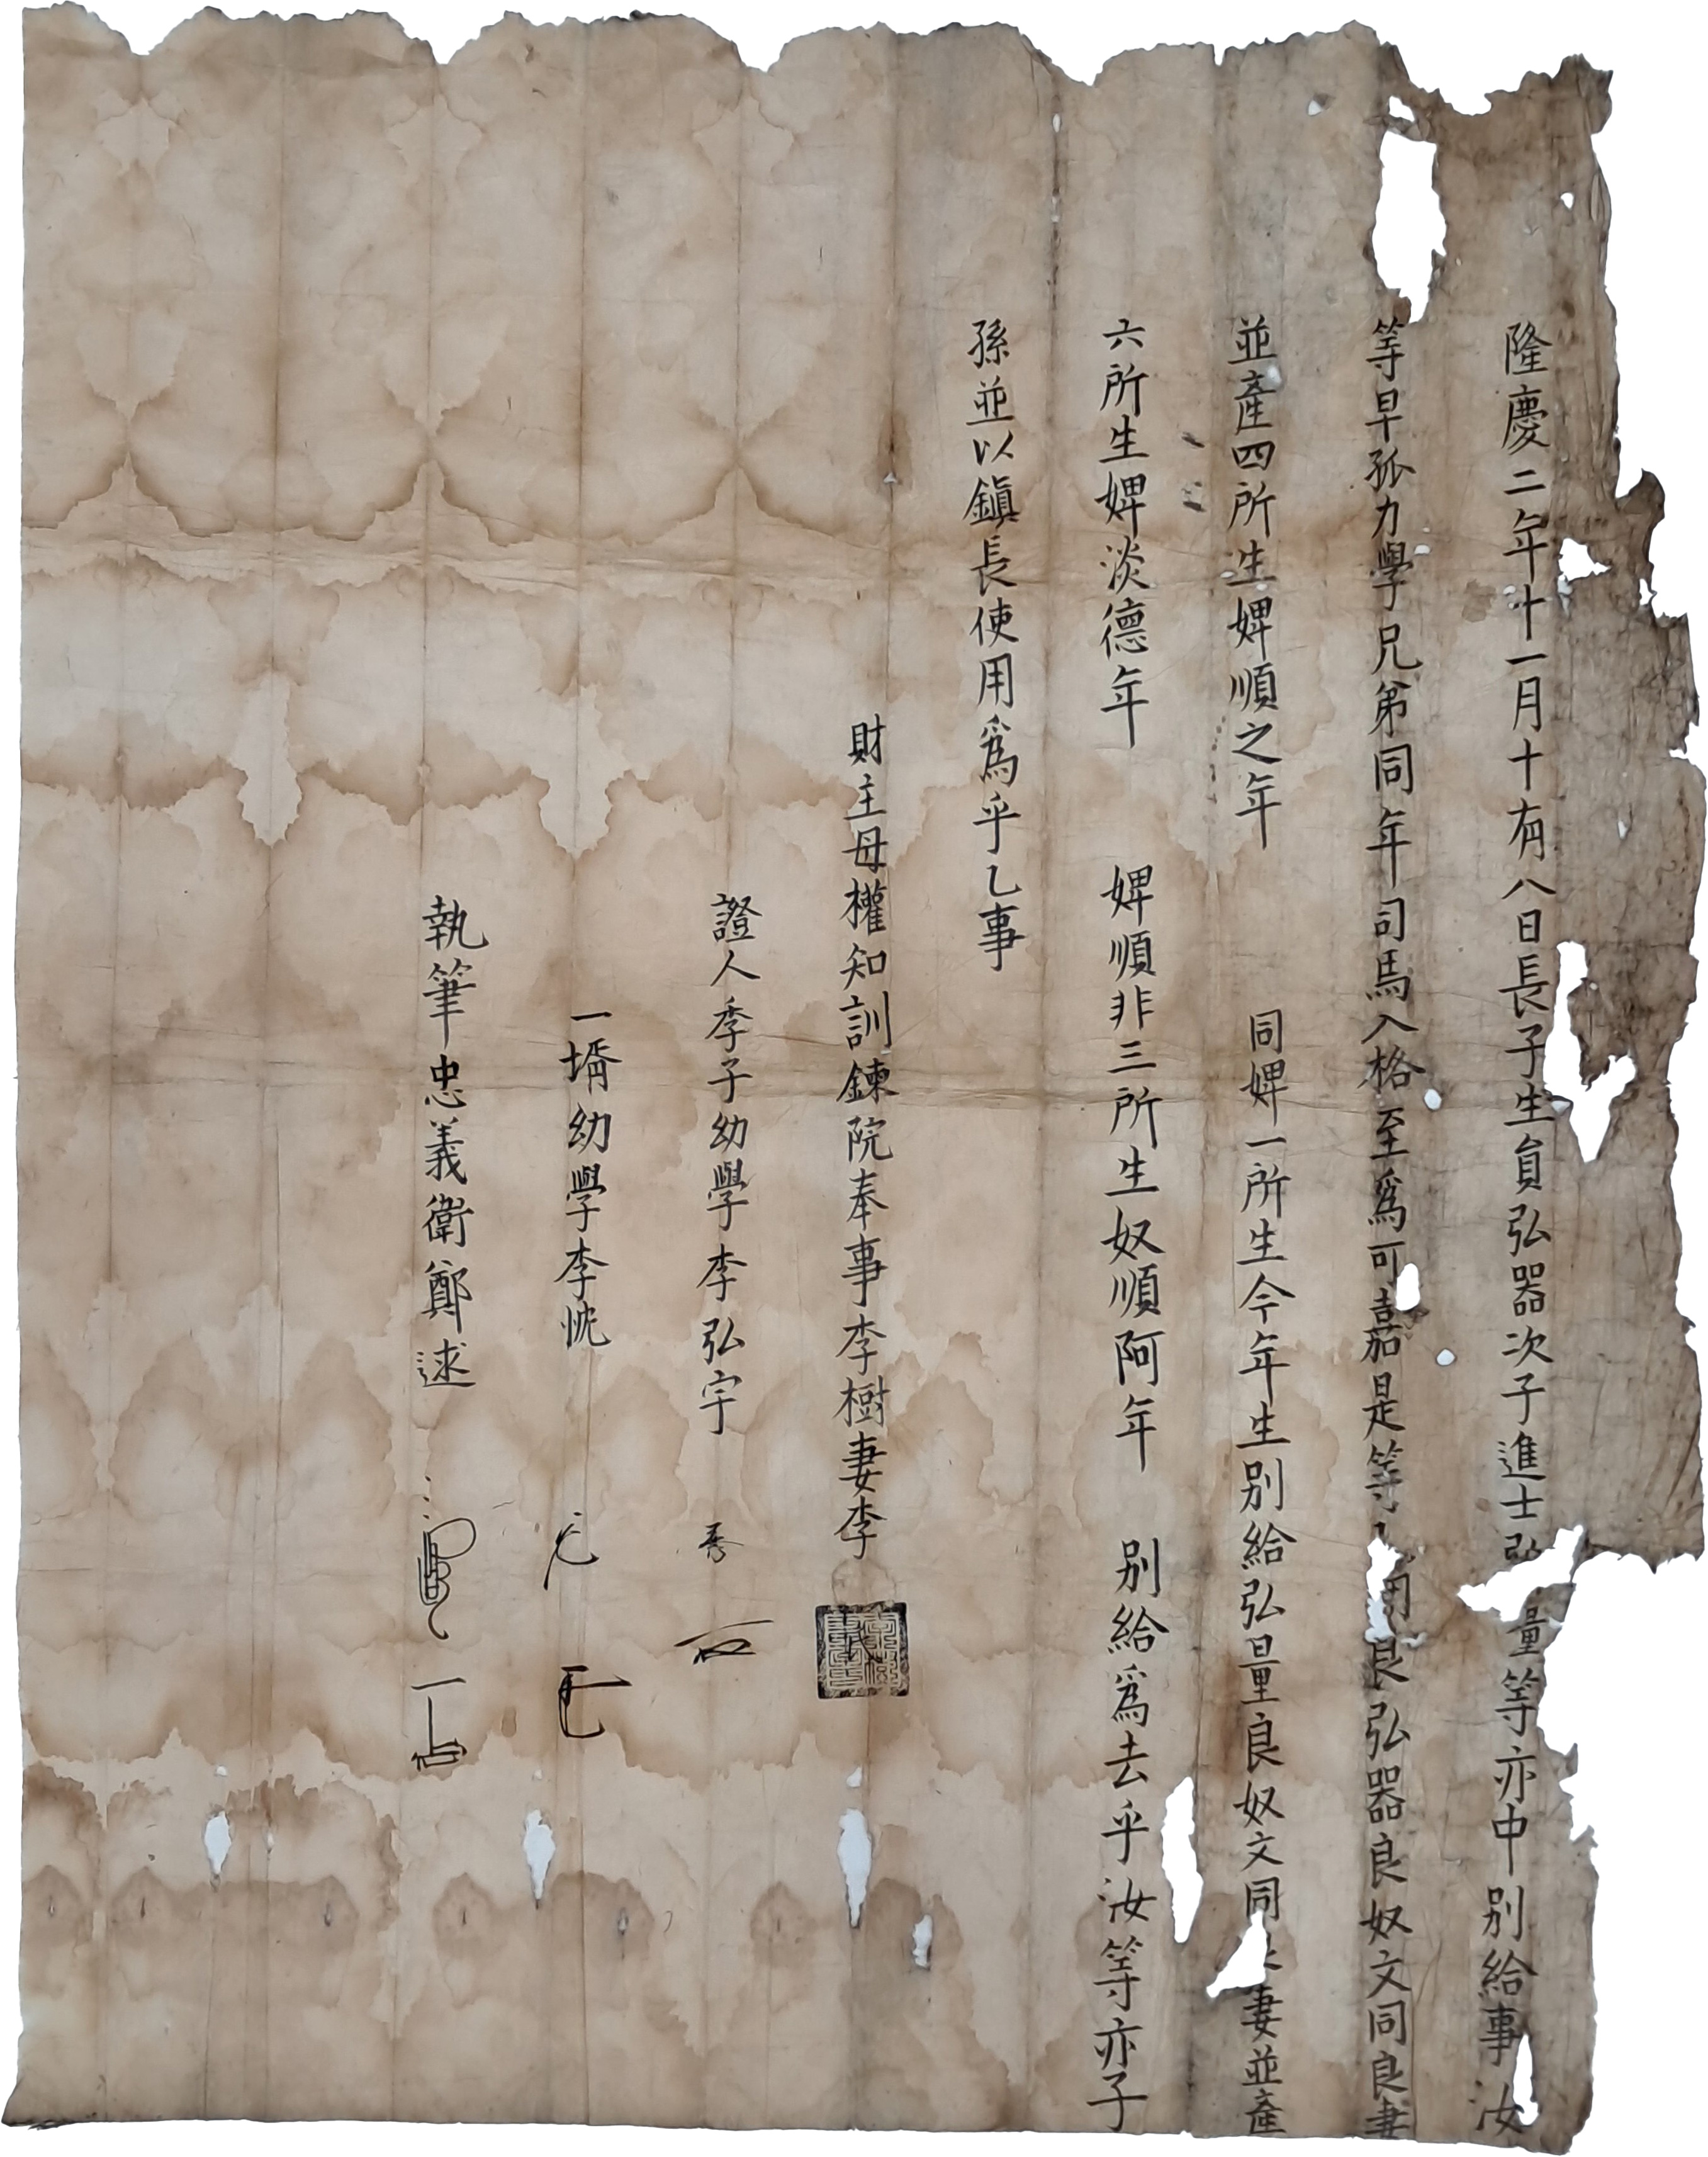 隆慶二年十一月十有八日長子生員弘器次子進士弘量等亦中別給事汝
等早孤力學兄弟同年司馬入格至爲可嘉是等良弘器良奴文同良妻
並產四所生婢順之年 同婢一所生今年生別給弘量良奴文同妻並產
六所生婢淡德年 婢順非三所生奴順阿年 別給爲去乎汝等亦子
孫並以鎭長使用爲乎乙事
財主母權知訓鍊院奉事李樹妻李
證人季子幼學李弘宇
一壻幼學李忱
執筆忠義衛鄭逑